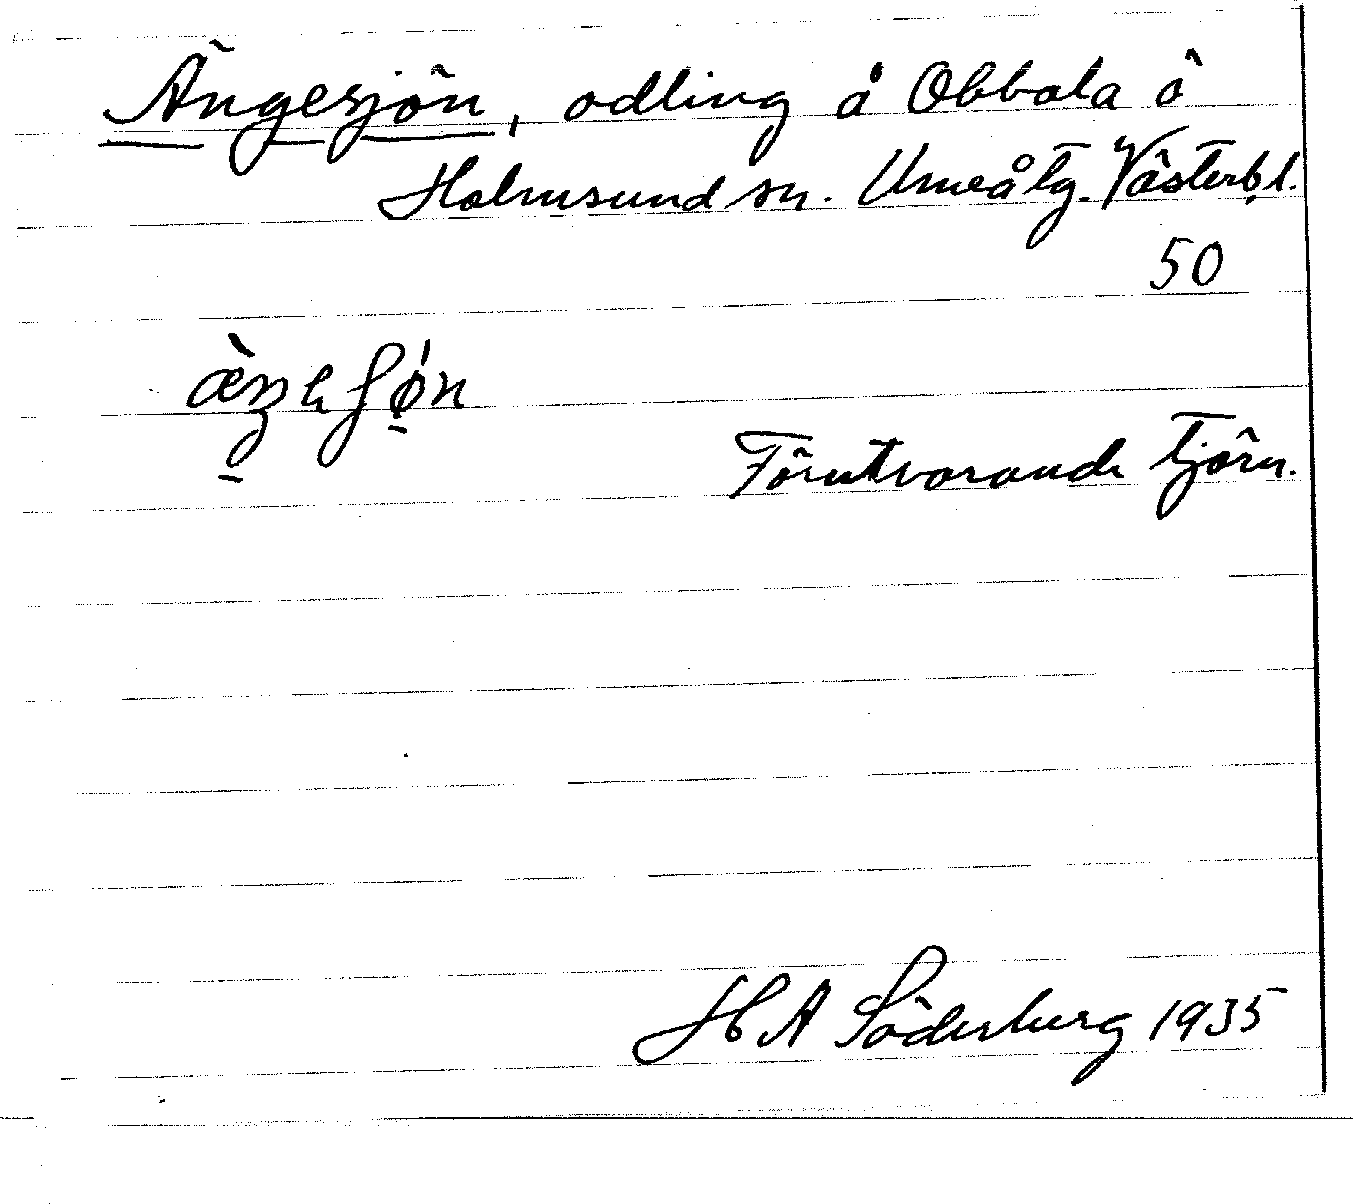 Ängesjön, odling å Obbola ö
Holmsund sn. Umeå tg. Västerb.l.
50
Förutvarande tjärn.
H A Söderberg 1935